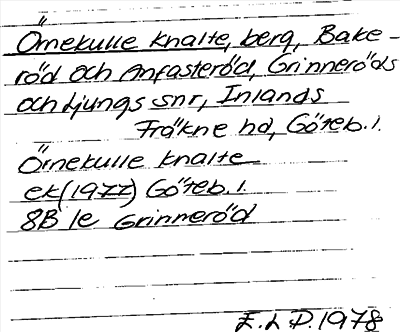 Örnekulle knalte, berg, Bake-
röd och Anfasteröd, Grinneröds
och Ljungs snr, Inlands
Fräkne hd, Göteb. l.
Örnekulle knalte
ek (1977) Göteb. l.
8B 1e Grinneröd
E. L. P. 1978